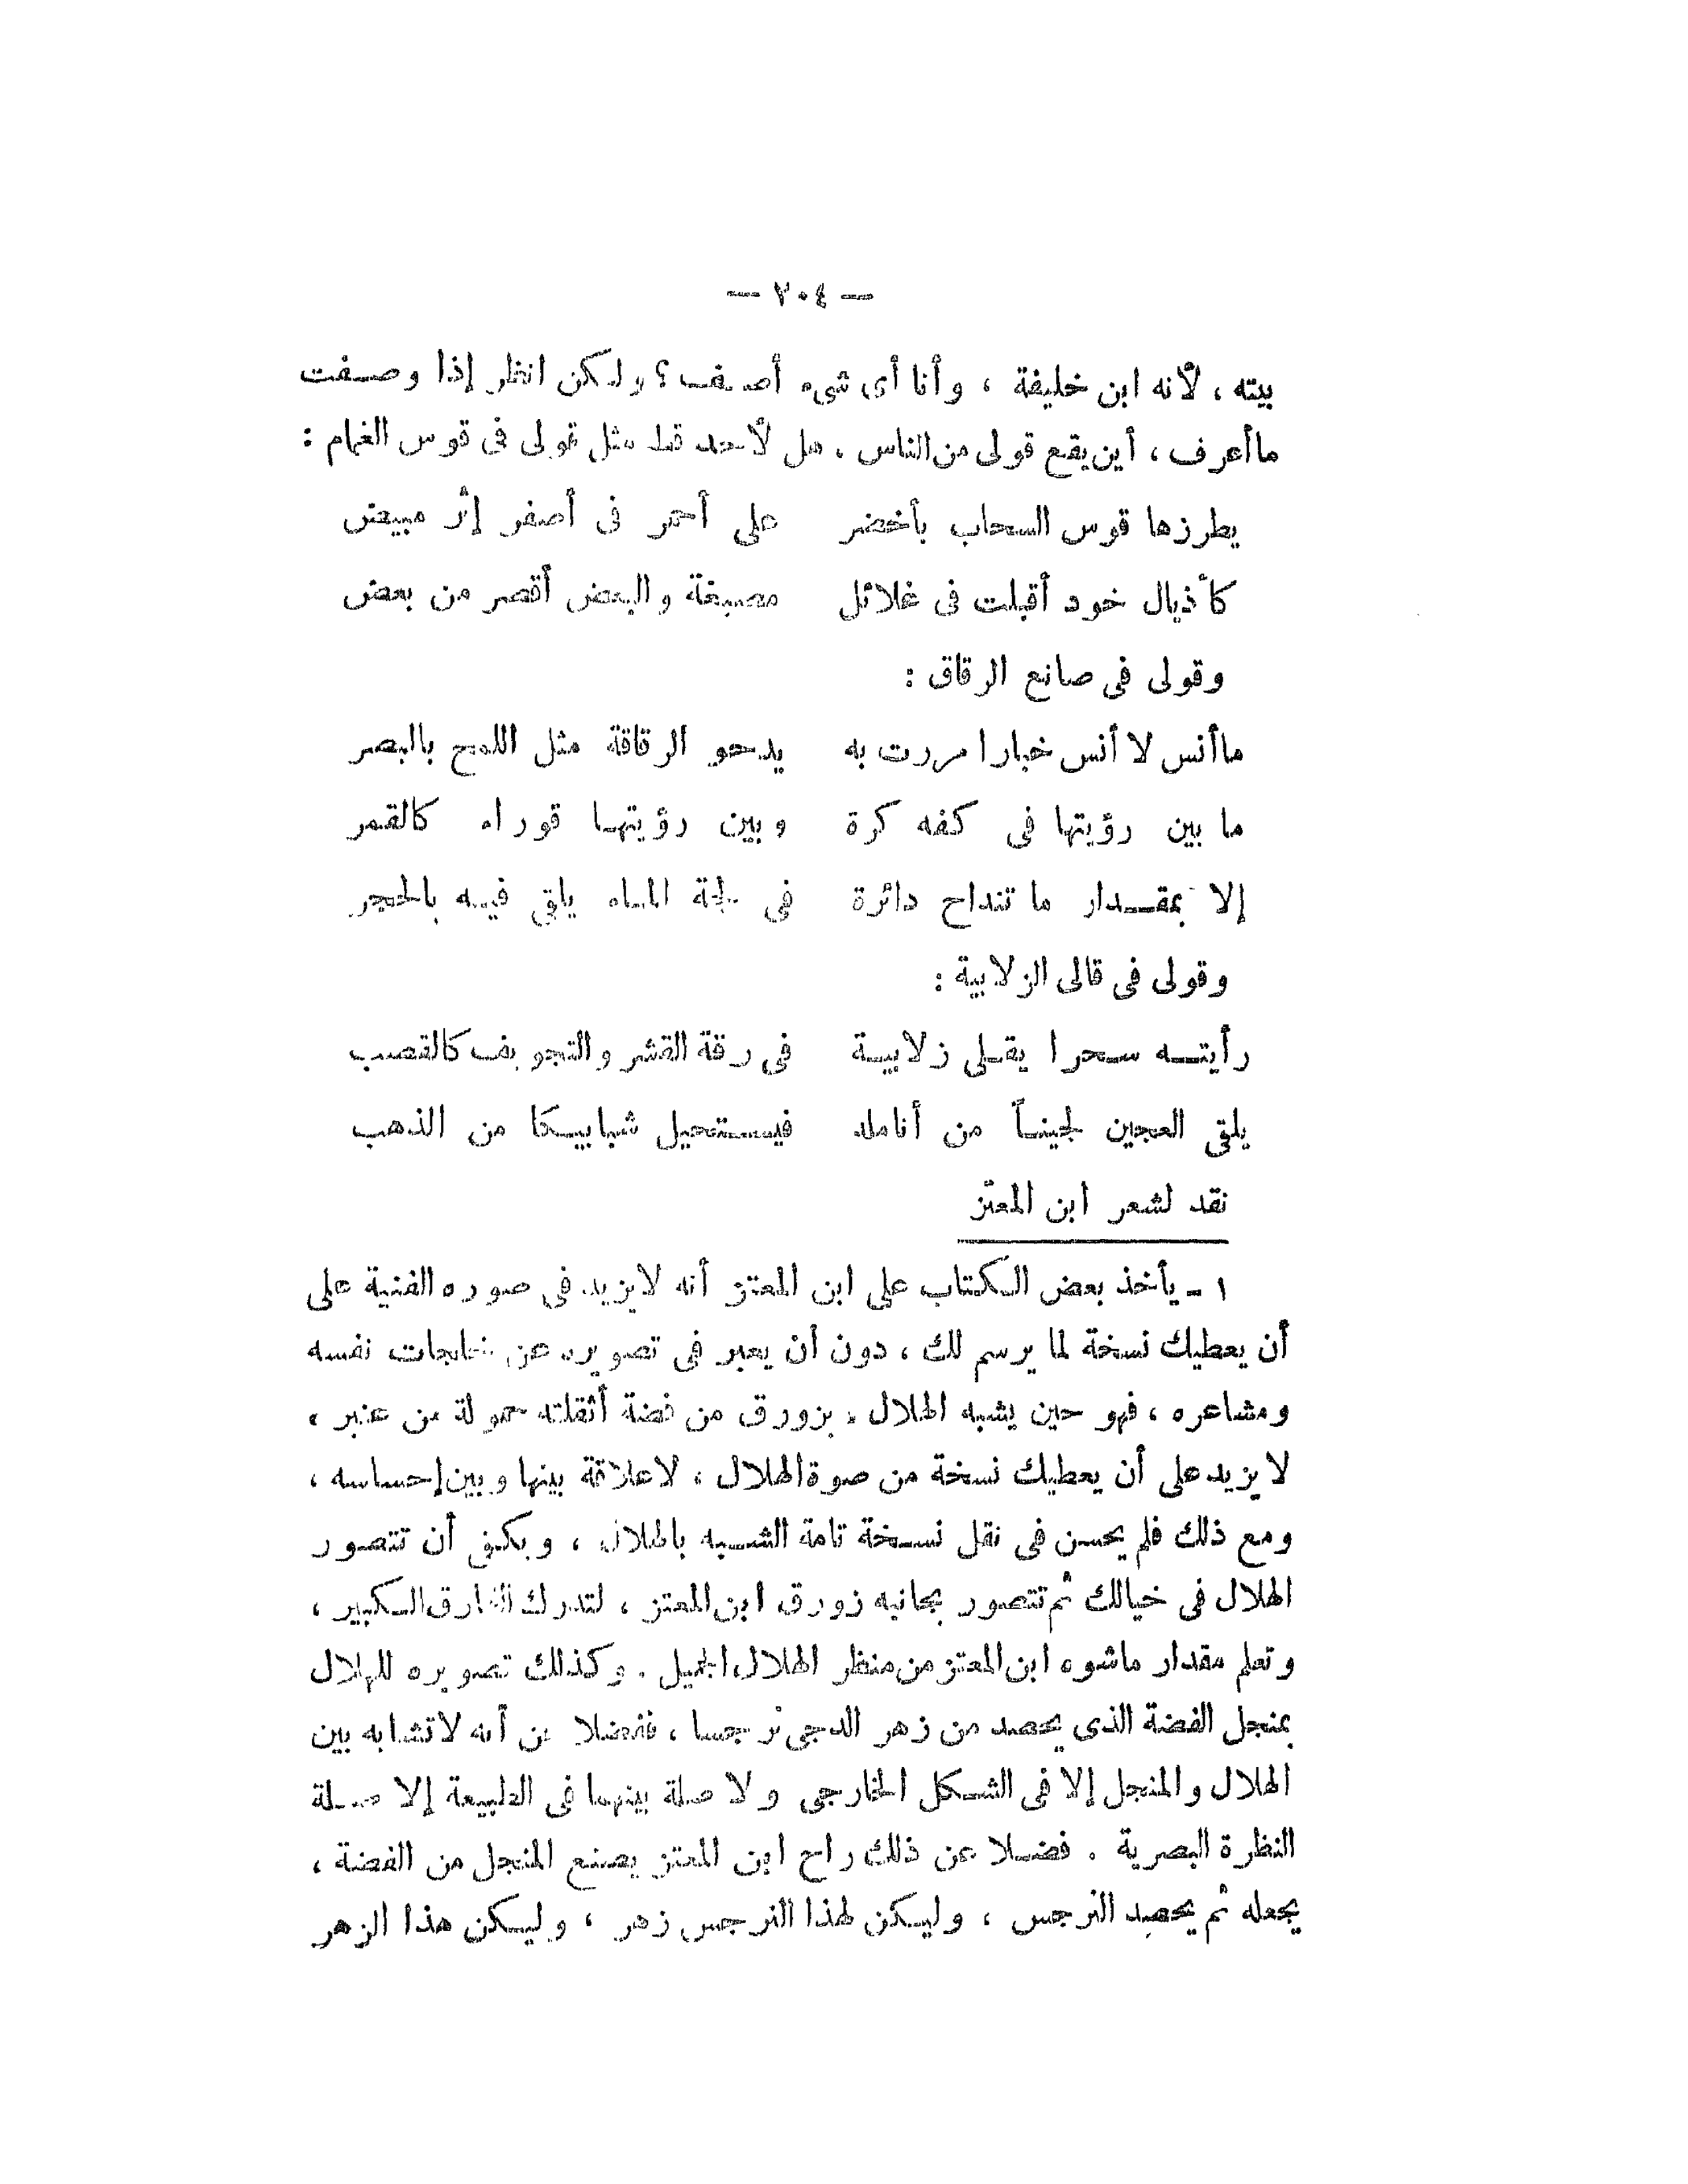 — ٢٠٤ —
بيته ، لأنه ابن خليفة ، وأنا أى شىء أصف ؟ ولكن انظر إذا وصفت
ما أعرف ، أين يقع قولى من الناس ، هل لأحد قط مثل قولى فى قوس الغمام :
يطرزها قوس السحاب بأخضر على أحمر فى أصفر إثر مبيض
كأذيال خود أقبلت فى غلائل مصبغة والبعض أقصر من بعض
وقولى فى صانع الرقاق :
ما أنس لا أنس خبارا مررت به يدحو الرقاقة مثل اللمح بالبصر
ما بين رؤيتها فى كفه كرة وبين رؤيتها قوراء كالقمر
إلا بمقدار ما تنداح دائرة فى لجة الماء يلقى فيه بالحجر
وقولى فى قالى الزلابية :
رأيته سحرا يقلى زلابية فى رقة القشر والتجويف كالقصب
يلقى العجين لجيناً من أنامله فيستحيل شبابيكا من الذهب
نقد لشعر ابن المعتز
١ - يأخذ بعض الكتاب على ابن المعتز أنه لا يزيد فى صوره الفنية على
أن يعطيك نسخة لما يرسم لك ، دون أن يعبر فى تصويره عن خلجات نفسه
ومشاعره ، فهو حين يشبه الهلال ، بزورق من فضة أثقلته حمولة من عنبر ،
لا يزيد على أن يعطيك نسخة من صوة الهلال ، لا علاقة بينها وبين إحساسه ،
ومع ذلك فلم يحسن فى نقل نسخة تامة الشبه بالهلال ، ويكفى أن تتصور
الهلال فى خيالك ثم تتصور بجانبه زورق ابن المعتز ، لتدرك الفارق الكبير ،
وتعلم مقدار ماشوه ابن المعتز من منظر الهلال الجميل . وكذلك تصويره للهلال
بمنجل الفضة الذى يحصد من زهر الدجى نرجسا ، ففضلا عن أنه لا تشابه بين
الهلال والمنجل إلا فى الشكل الخارجى ولا صلة بينهما فى الطبيعة إلا صلة
النظرة البصرية . فضلا عن ذلك راح ابن المعتز يصنع المنجل من الفضة ،
يجعله ثم يحصد النرجس ، وليكن لهذا النرجس زهر ، وليكن هذا الزهر